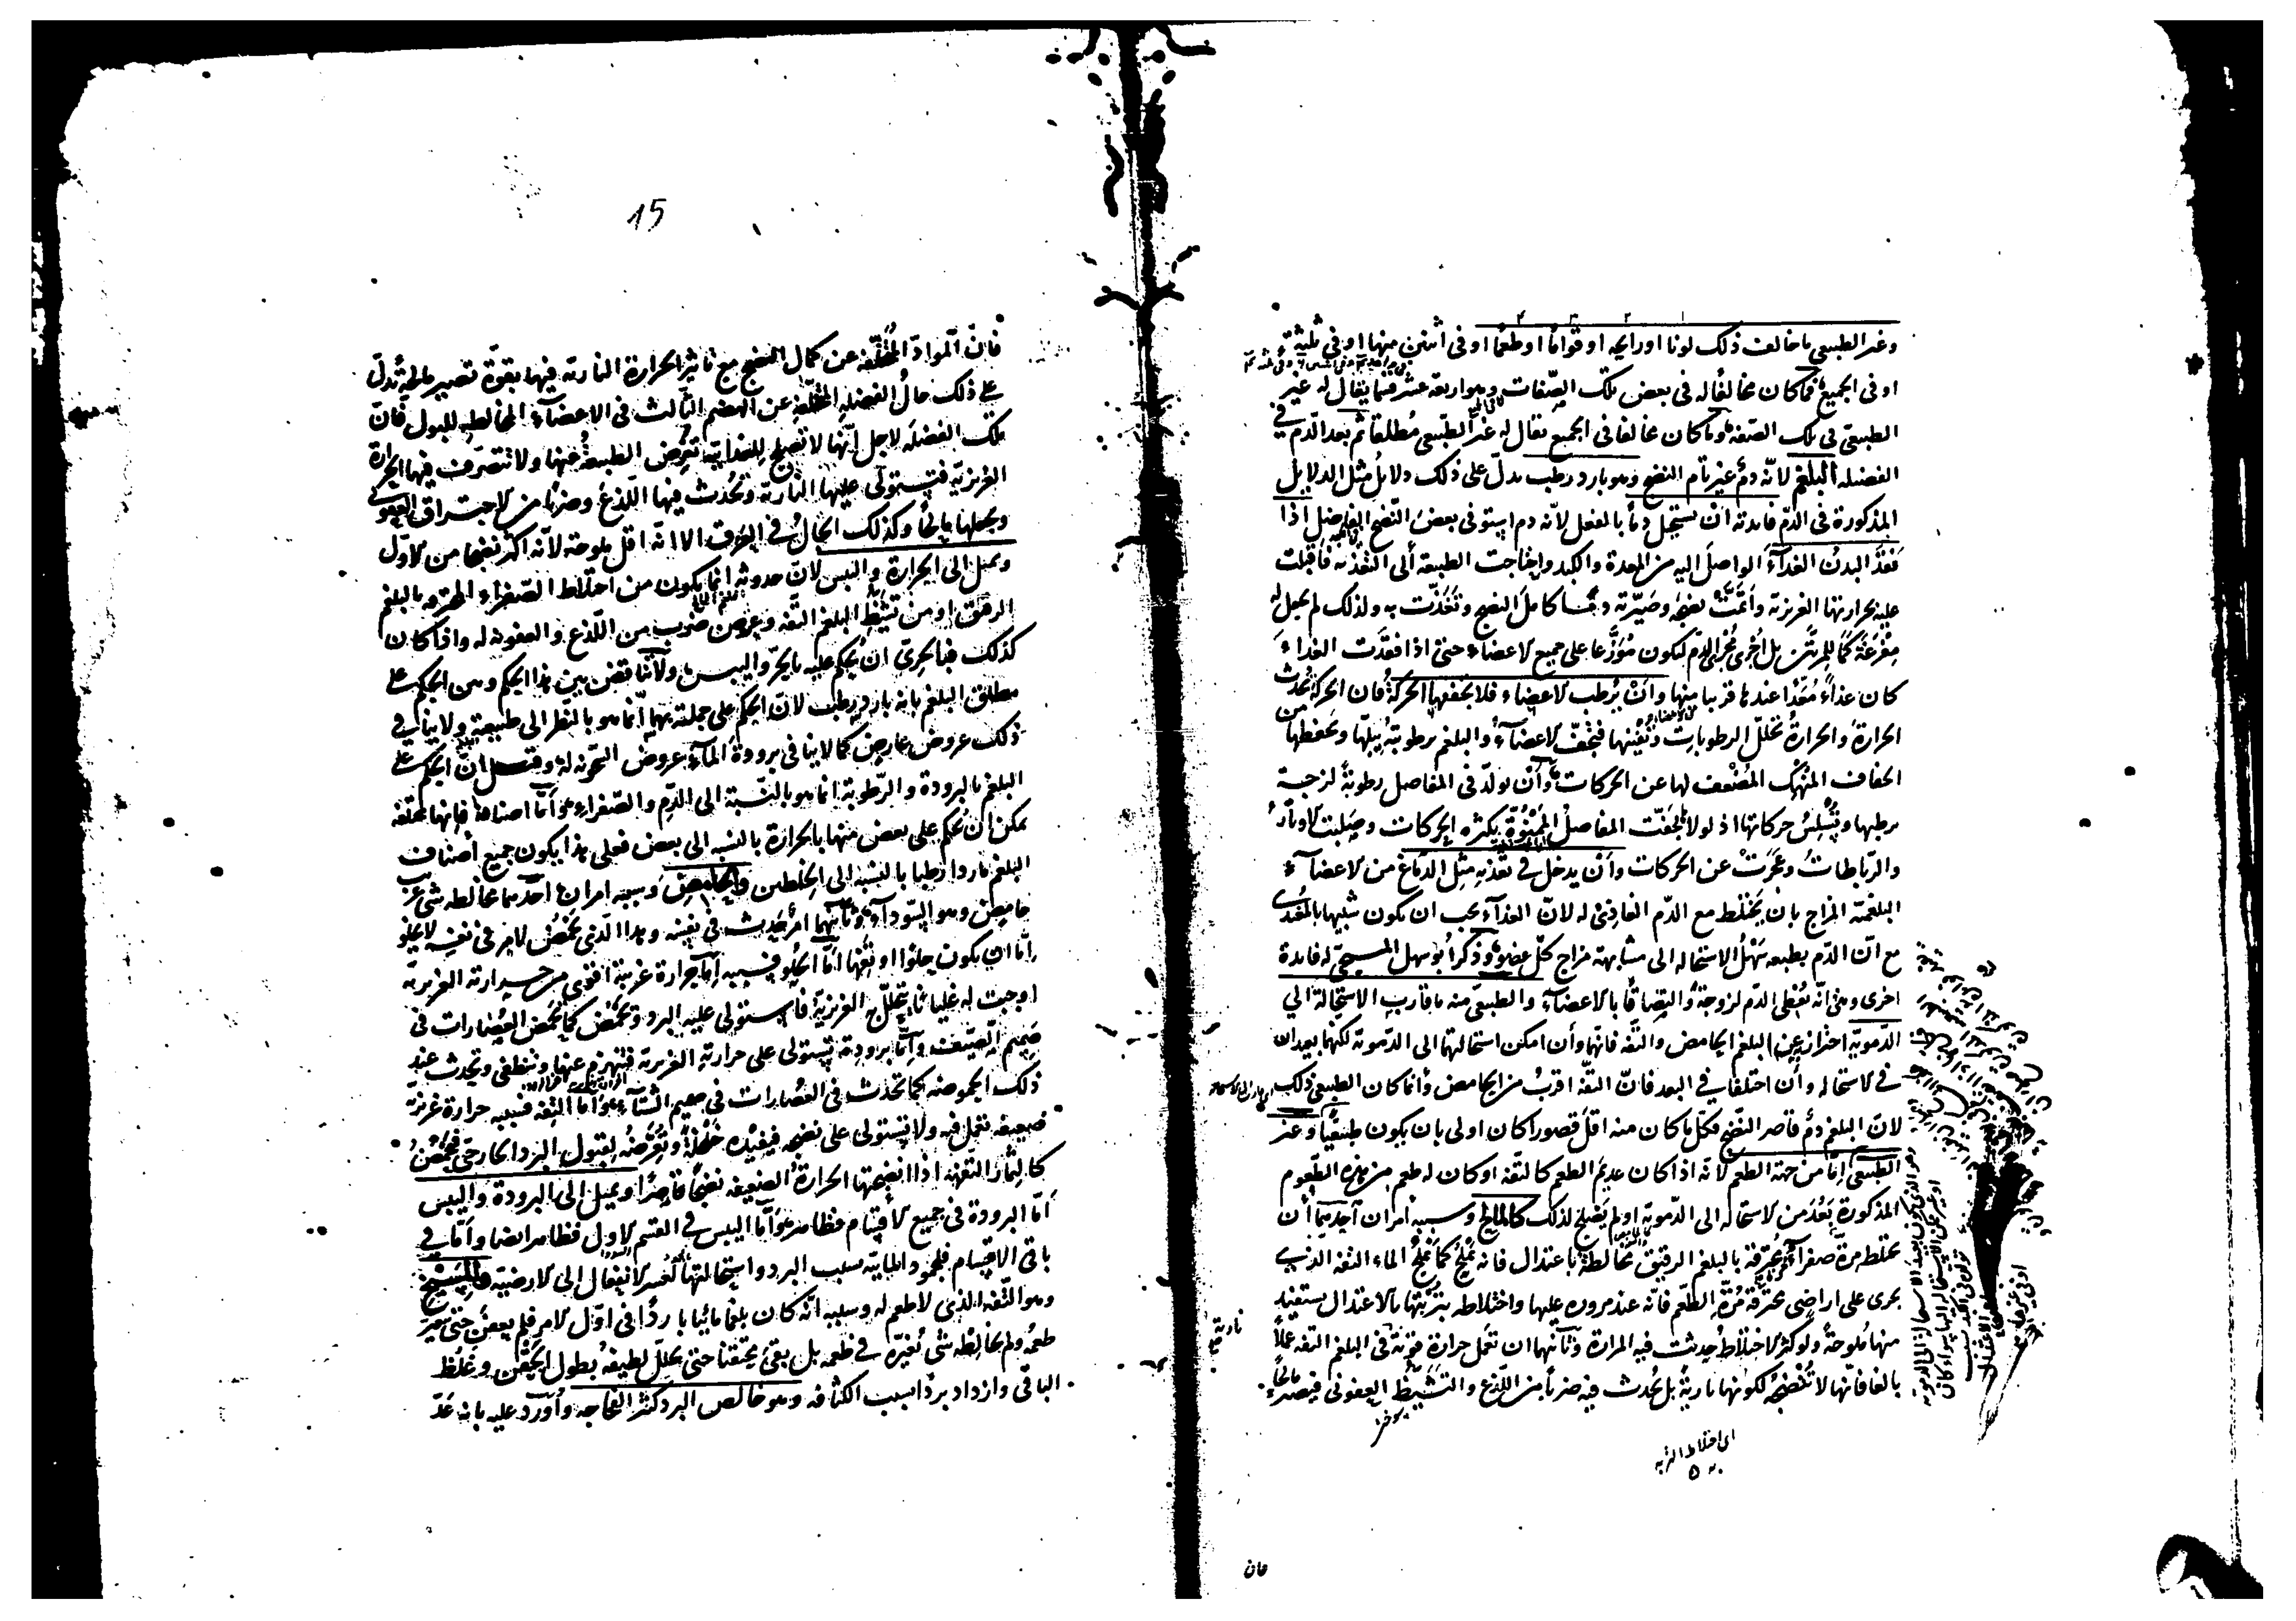 وغير الطبيعي ما خالف ذلك لونا او رايحة او قواما او طعما او في اثنين منها او في ثلثة
او في الجميع فما كان مخالفا له في بعض تلك الصفات وهو اربعة عشر قسما يقال له غير
الطبيعي في تلك الصفة وما كان مخالفا في الجميع يقال له غير الطبيعي مطلقا ثم بعد الدم في
الفضيلة البلغم لانه دم غير تام النضج وهو بارد رطب يدل على ذلك دلايل مثل الدلايل
المذكورة في الدم فايدته ان يستحيل دما بالفعل لانه دم استوفى بعض النضج الفاضل اذا
فقد البدن الغذاء الواصل اليه من المعدة والكبد واحتاجت الطبيعة الى التغذية فاقبلت
عليه بحرارتها الغريزية واتمت نضجه وصيرته دما كامل النضج وتغذت به ولذلك لم يجعل له
مفرغة كما للمرتين بل اجرى مجرى الدم ليكون موزعا على جميع الاعضاء حتى اذا فقدت الغذاء
كان غذاء معدا عندها قريبا منها وان يرطب الاعضاء فلا يجففها الحركة فان الحركة تحدث
الحرارة والحرارة تحلل الرطوبات وتفنيها فتجف الاعضاء والبلغم برطوبته يبلها ويحفظها من
الجفاف المنهك المضعف لها عن الحركات وان يولد في المفاصل رطوبة لزجة
يرطبها ويسلس حركاتها اذ لولا لجفت المفاصل الممنوة بكثرة الحركات وصلبت الاوتار
والرباطات وعجزت عن الحركات وان يدخل في تغذية مثل الدماغ من الاعضاء
البلغمية المزاج بان يختلط مع الدم الغاذي له لان الغذاء يجب ان يكون شبيها بالمغتذي
مع ان الدم بطبعه سهل الاستحالة الى مشابهة مزاج كل عضو وذكر ابو سهل المسيحي له فايدة
اخرى وهي انه يعطي الدم لزوجة والتصاقا بالاعضاء والطبيعي منه ما قارب الاستحالة الي
الدموية احتراز عن البلغم الحامض والتفه فانهما وان امكن استحالتهما الى الدموية لكنهما بعيدان
في الاستحالة وان اختلفا في البعد فان التفه اقرب من الحامض وانما كان الطبيعي ذلك
لان البلغم دم قاصر النضج فكل ما كان منه اقل قصورا كان اولى بان يكون طبيعيا وغير
الطبيعي اما من جهة الطعم لانه اذا كان عديم الطعم كالتفه او كان له طعم من هذه الطعوم
المذكورة بعد من الاستحالة الى الدموية او لم يصلح لذلك كالمالح وسببه امران احدهما ان
يختلط مرة صفراء محترقة بالبلغم الرقيق مخالطة باعتدال فانه يملح كما يملح الماء التفه الذي
يجري على اراضي محترقة مرة الطعم فانه عند مروره عليها واختلاطه بتربتها بالاعتدال يستفيد
منها ملوحة ولو كثر الاختلاط حدثت فيه المرارة وثانيهما ان تعمل حرارة قوية في البلغم التفه عملا
بالغا فانها لا تنضجه لكونها نارية بل يحدث فيه ضربا من اللذع والتشيط العفوني فيصير مالحا
اي اختلاط التربة
به
فان
15
فان المواد المتخلفة عن كمال النضج مع تاثير الحرارة النارية فيها بقوة تصير مالحة يدل
على ذلك حال الفضلة المتخلفة عن الهضم الثالث في الاعضاء المخالطة للبول فان
تلك الفضلة لاجل انها لا تصلح للغذاية تعرض الطبيعة عنها ولا تتصرف فيها الحرارة
الغريزية فتستولى عليها النارية وتحدث فيها اللذع وضربا من الاحتراق العفوني
ويجعلها مالحا وكذلك الحال في العرق الا انه اقل ملوحة لانه اكثر نضجا من الاول
ويميل الى الحرارة واليبس لان حدوثه انما يكون من اختلاط الصفراء المحترقة بالبلغم
الرقيق او من تشيط البلغم التفه وعروض ضرب من اللذع والعفونة له واذا كان
كذلك فبالحرى ان يحكم عليه بالحر واليبس ولا تناقض بين هذا الحكم وبين الحكم على
مطلق البلغم بانه بارد رطب لان الحكم على جملته بهما انما هو بالنظر الى طبيعته ولا ينافي
ذلك عروض عارض كما لا ينافي برودة الماء عروض السخونة له وقيل ان الحكم على
البلغم بالبرودة والرطوبة انما هو بالنسبة الى الدم والصفراء واما اصنافه فانها مختلفة
يمكن ان يحكم على بعض منها بالحرارة بالنسبة الى بعض فعلى هذا يكون جميع اصناف
البلغم باردا رطبا بالنسبة الى الخلطين والحامض وسببه امران احدهما مخالطة شي غريب
حامض وهو السوداء وثانيهما امر يحدث في نفسه وهذا الذي يحمض لامر في نفسه لا يخلو
اما ان يكون حلوا او تفها اما الحلو فسببه اما حرارة غريبة اقوى من حرارته الغريزية
اوجبت له غليانا يتحلل الغريزية فاستولى عليه البرد وتحمض كما تحمض العصارات في
صميم الصيف واما برودة تستولى على حرارته الغريزية فتنهزم عنها وتنطفي وتحدث عند
ذلك الحموضة كما تحدث في العصارات في صميم الشتاء واما التفه فسببه حرارة غريزية
ضعيفة تعمل فيه ولا تستولى على نضجه فيفيده خلخلة وتعرضه لقبول البرد الخارجي فيحمض
كالثمار التفهة اذا انضجتها الحرارة الضعيفة نضجا قاصرا ويميل الى البرودة واليبس
اما البرودة في جميع الاقسام فظاهر واما اليبس في القسم الاول فظاهر ايضا واما في
باقي الاقسام فلجمود المايية بسبب البرد واستحالتها الى الارضية والمسيخ
وهو التفه الذي لا طعم له وسببه انه كان بلغما مائيا باردا في اول الامر فلم يعفن حتى يتغير
طعمه ولم يخالطه شي يغيره في طعمه بل بقى محتقنا حتى تحلل لطيفه بطول الحقن وغلظ
الباقي وازداد بردا بسبب الكثافة وهو خالص البرد كثير الفجاجة واورد عليه بانه عد